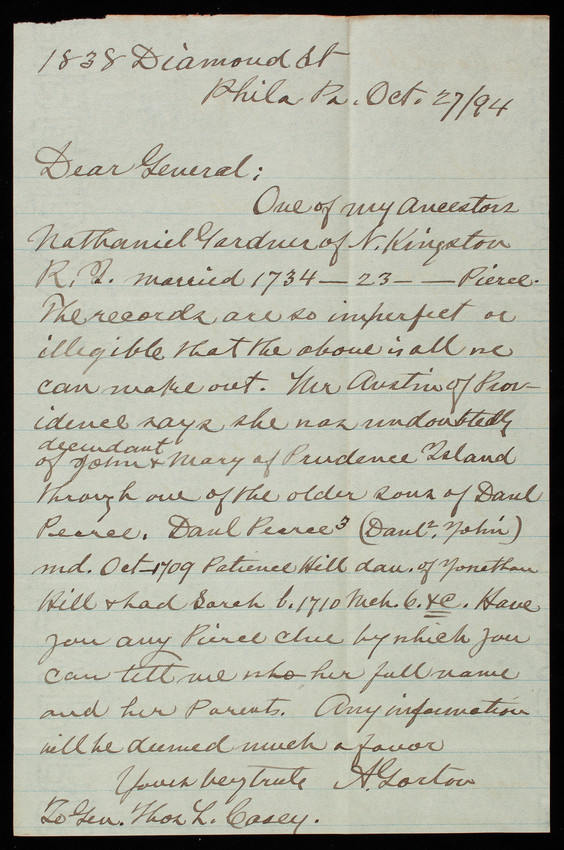 1838 Diamond St
Phila Pa. Oct. 27/94
Dear General;
One of my Ancestors
Nathaniel Gardner of N. Kingston
R. I. married 1734 — 23 — — Pierce.
The records are so imperfect or
illegible that the above is all we
can make out. Mr Austin of Prov-
idence says she was undoubtedly
decendant
of John & Mary of Prudence Island
through one of the older sons of Danl
Pearce. Danl Pearce 3 (Danl 2, John 1)
md. Oct 1709 Patience Hill dau. of Jonathan
Hill & had Sarah b. 1710 Mch. 6. &c. Have
you any Pierce clue by which you
can tell me who her full name
and her Parents. Any information
will be deemed much a favor
Yours very truly A. Gorton
To Gen. Thos L. Casey.